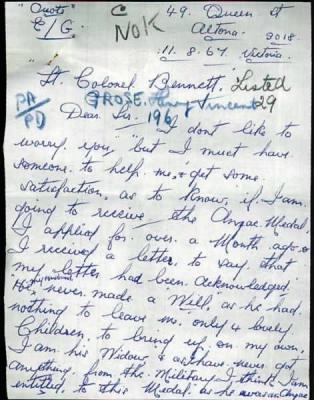 "Quote" C 49. Queen St
E/G. NOK Altona. 3018.
11.8.67. Victoria.
Lt. Colonel Bennett. Listed
PA/PD GROSE. Henry Vincent 29
Dear Sir. 196 I don't like to
worry you, but I must have
someone to help me & get some
satisfaction, as to know, if I am
going to receive the Anzac Medal
I applied for over a Month ago.
I received a letter to say that
my letter had been acknowledged.
My husband never made a Will, as he had
nothing to leave me. only 4 lovely
Children to bring up, on my own.
I am his Widow & have never got
anything from the Military. I think I am
entitled to this Medal as he was an Anzac